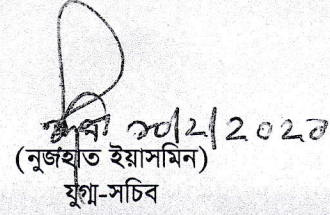 ১০/২/২০২০
(নুজহাত ইয়াসমিন)
যুগ্ম-সচিব